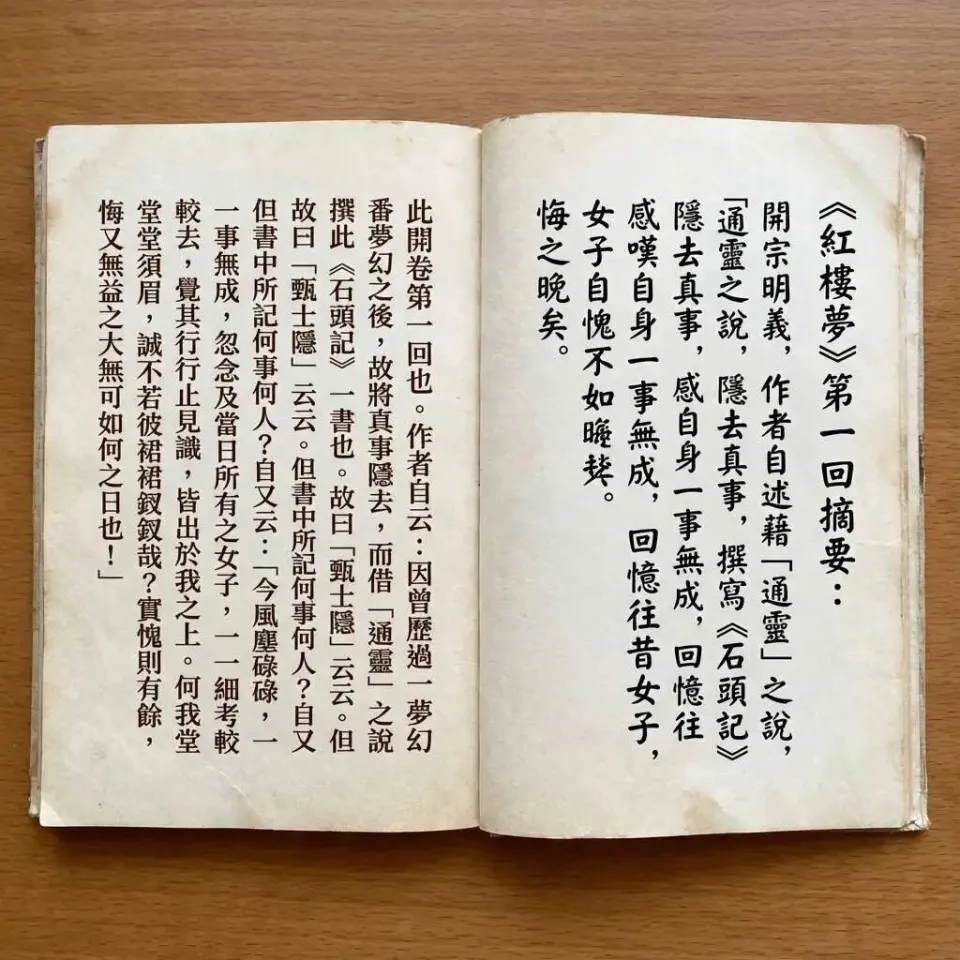 《紅樓夢》第一回摘要：
開宗明義，作者自述藉「通靈」之說，
「通靈之說，隱去真事，撰寫《石頭記》
隱去真事，感自身一事無成，回憶往
感嘆自身一事無成，回憶往昔女子，
女子自愧不如
悔之晚矣。
此開卷第一回也。作者自云：因曾歷過一夢幻
番夢幻之後，故將真事隱去，而借「通靈」之說
撰此《石頭記》一書也。故曰「甄士隱」云云。但
故曰「甄士隱」云云。但書中所記何事何人？自又
但書中所記何事何人？自又云：「今風塵碌碌，一
一事無成，忽念及當日所有之女子，一一細考較
較去，覺其行行止見識，皆出於我之上。何我堂
堂堂須眉，誠不若彼裙裙釵釵哉？實愧則有餘，
悔又無益之大無可如何之日也！」